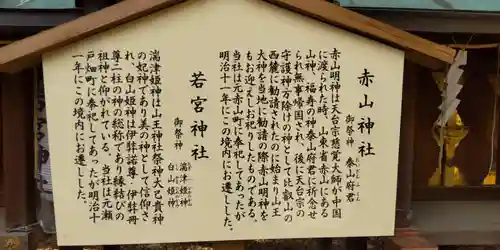 赤山神社
御祭神 泰山府君
赤山明神は天台宗慈覚大師が中国
に渡られた時、山東省赤山にある
山神、福寿の神泰山府君に祈念せ
られ無事帰国され、後に天台宗の
守護神方除けの神として比叡山の
西麓に勧請されたのに始まり山王
大神を当地に勧請の際赤山明神を
もお迎えしお祀したものである。
当社は元赤山町に奉祀してあったが
明治十一年にこの境内にお遷しした。
若宮神社
御祭神 湍津姫神
白山姫神
湍津姫神は山王神社祭神大己貴神
の妃神であり美の神として信仰さ
れ、白山姫神は伊弉諾尊・伊弉冊
尊二柱の神の総称であり縁結びの
祖神と仰がれている。当社は元瀬
戸畑町に奉祀してあったが明治十
一年にこの境内にお遷しした。